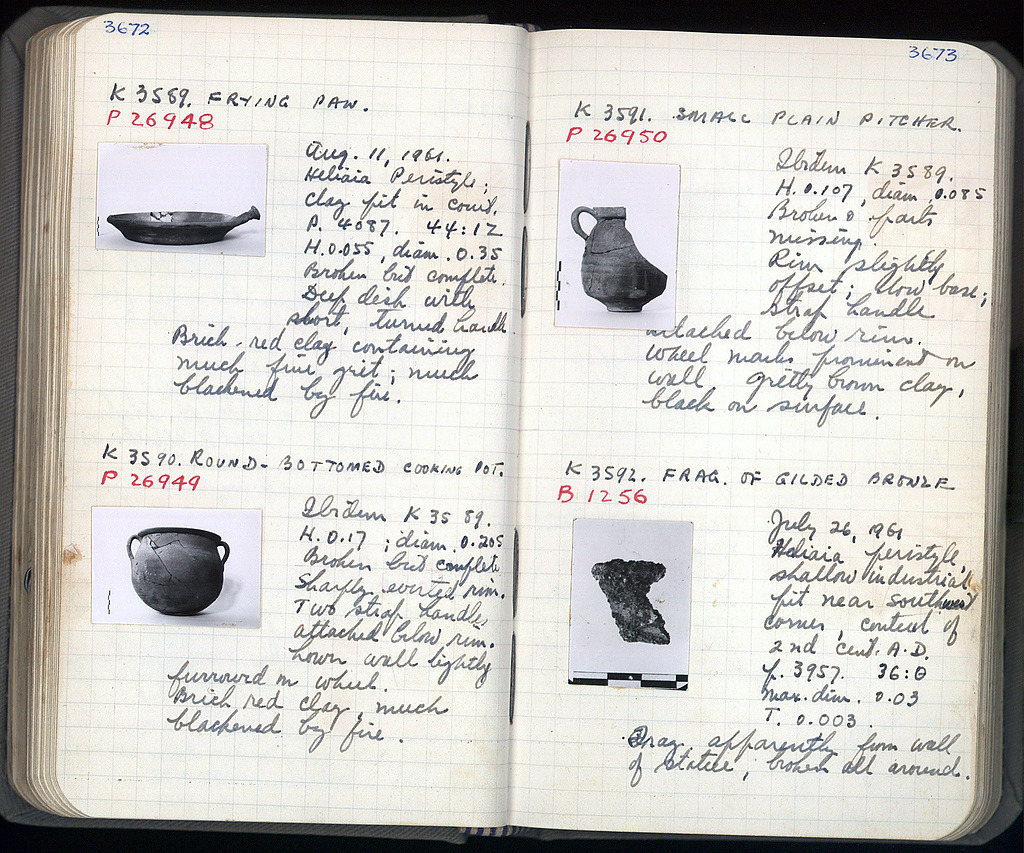 3672
K 3589. FRYING PAN.
P 26948
Aug. 11, 1961.
Heliaia Peristyle;
clay pit in court.
P. 4087. 44:IZ
H. 0.055, diam. 0.35
Broken but complete.
Deep dish with
short, turned handle.
Brick-red clay containing
much fine grit; much
blackened by fire.
K 3590. ROUND-BOTTOMED COOKING POT.
P 26949
Ibidem K 3589.
H. 0.17; diam. 0.205
Broken but complete
Sharply everted rim.
Two strap handles
attached below rim.
Lower wall lightly
furrowed on wheel.
Brick red clay, much
blackened by fire.
3673
K 3591. SMALL PLAIN PITCHER.
P 26950
Ibidem K 3589.
H. 0.107, diam. 0.085
Broken & parts
missing.
Rim slightly
offset; low base;
strap handle
attached below rim.
Wheel marks prominent on
wall. Gritty brown clay,
black on surface.
K 3592. FRAG. OF GILDED BRONZE
B 1256
July 26, 1961
Heliaia peristyle,
shallow industrial
pit near southwest
corner, context of
2nd cent. A.D.
p. 3957. 36:Θ
Max. dim. 0.03
T. 0.003.
Frag. apparently from wall
of statue; broken all around.